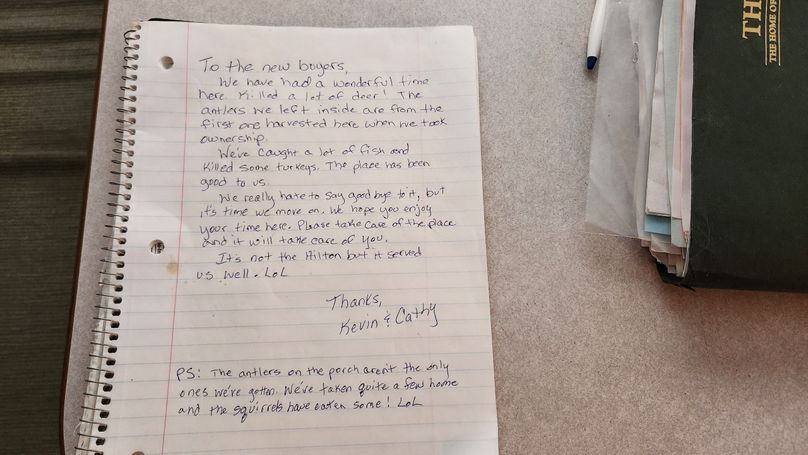 To the new boyers,
We have had a wonderful time
here. Killed a lot of deer! The
antlers we left inside are from the
first one harvested here when we took
ownership.
We've caught a lot of fish and
killed some turkeys. The place has been
good to us.
We really hate to say goodbye to it, but
it's time we move on. We hope you enjoy
your time here. Please take care of the place
and it will take care of you.
It's not the Hilton but it served
us well. LoL
Thanks,
Kevin & Cathy
PS: The antlers on the porch aren't the only
ones we've gotten. We've taken quite a few home
and the squirrels have eaten some! LoL
TH
THE HOME OF